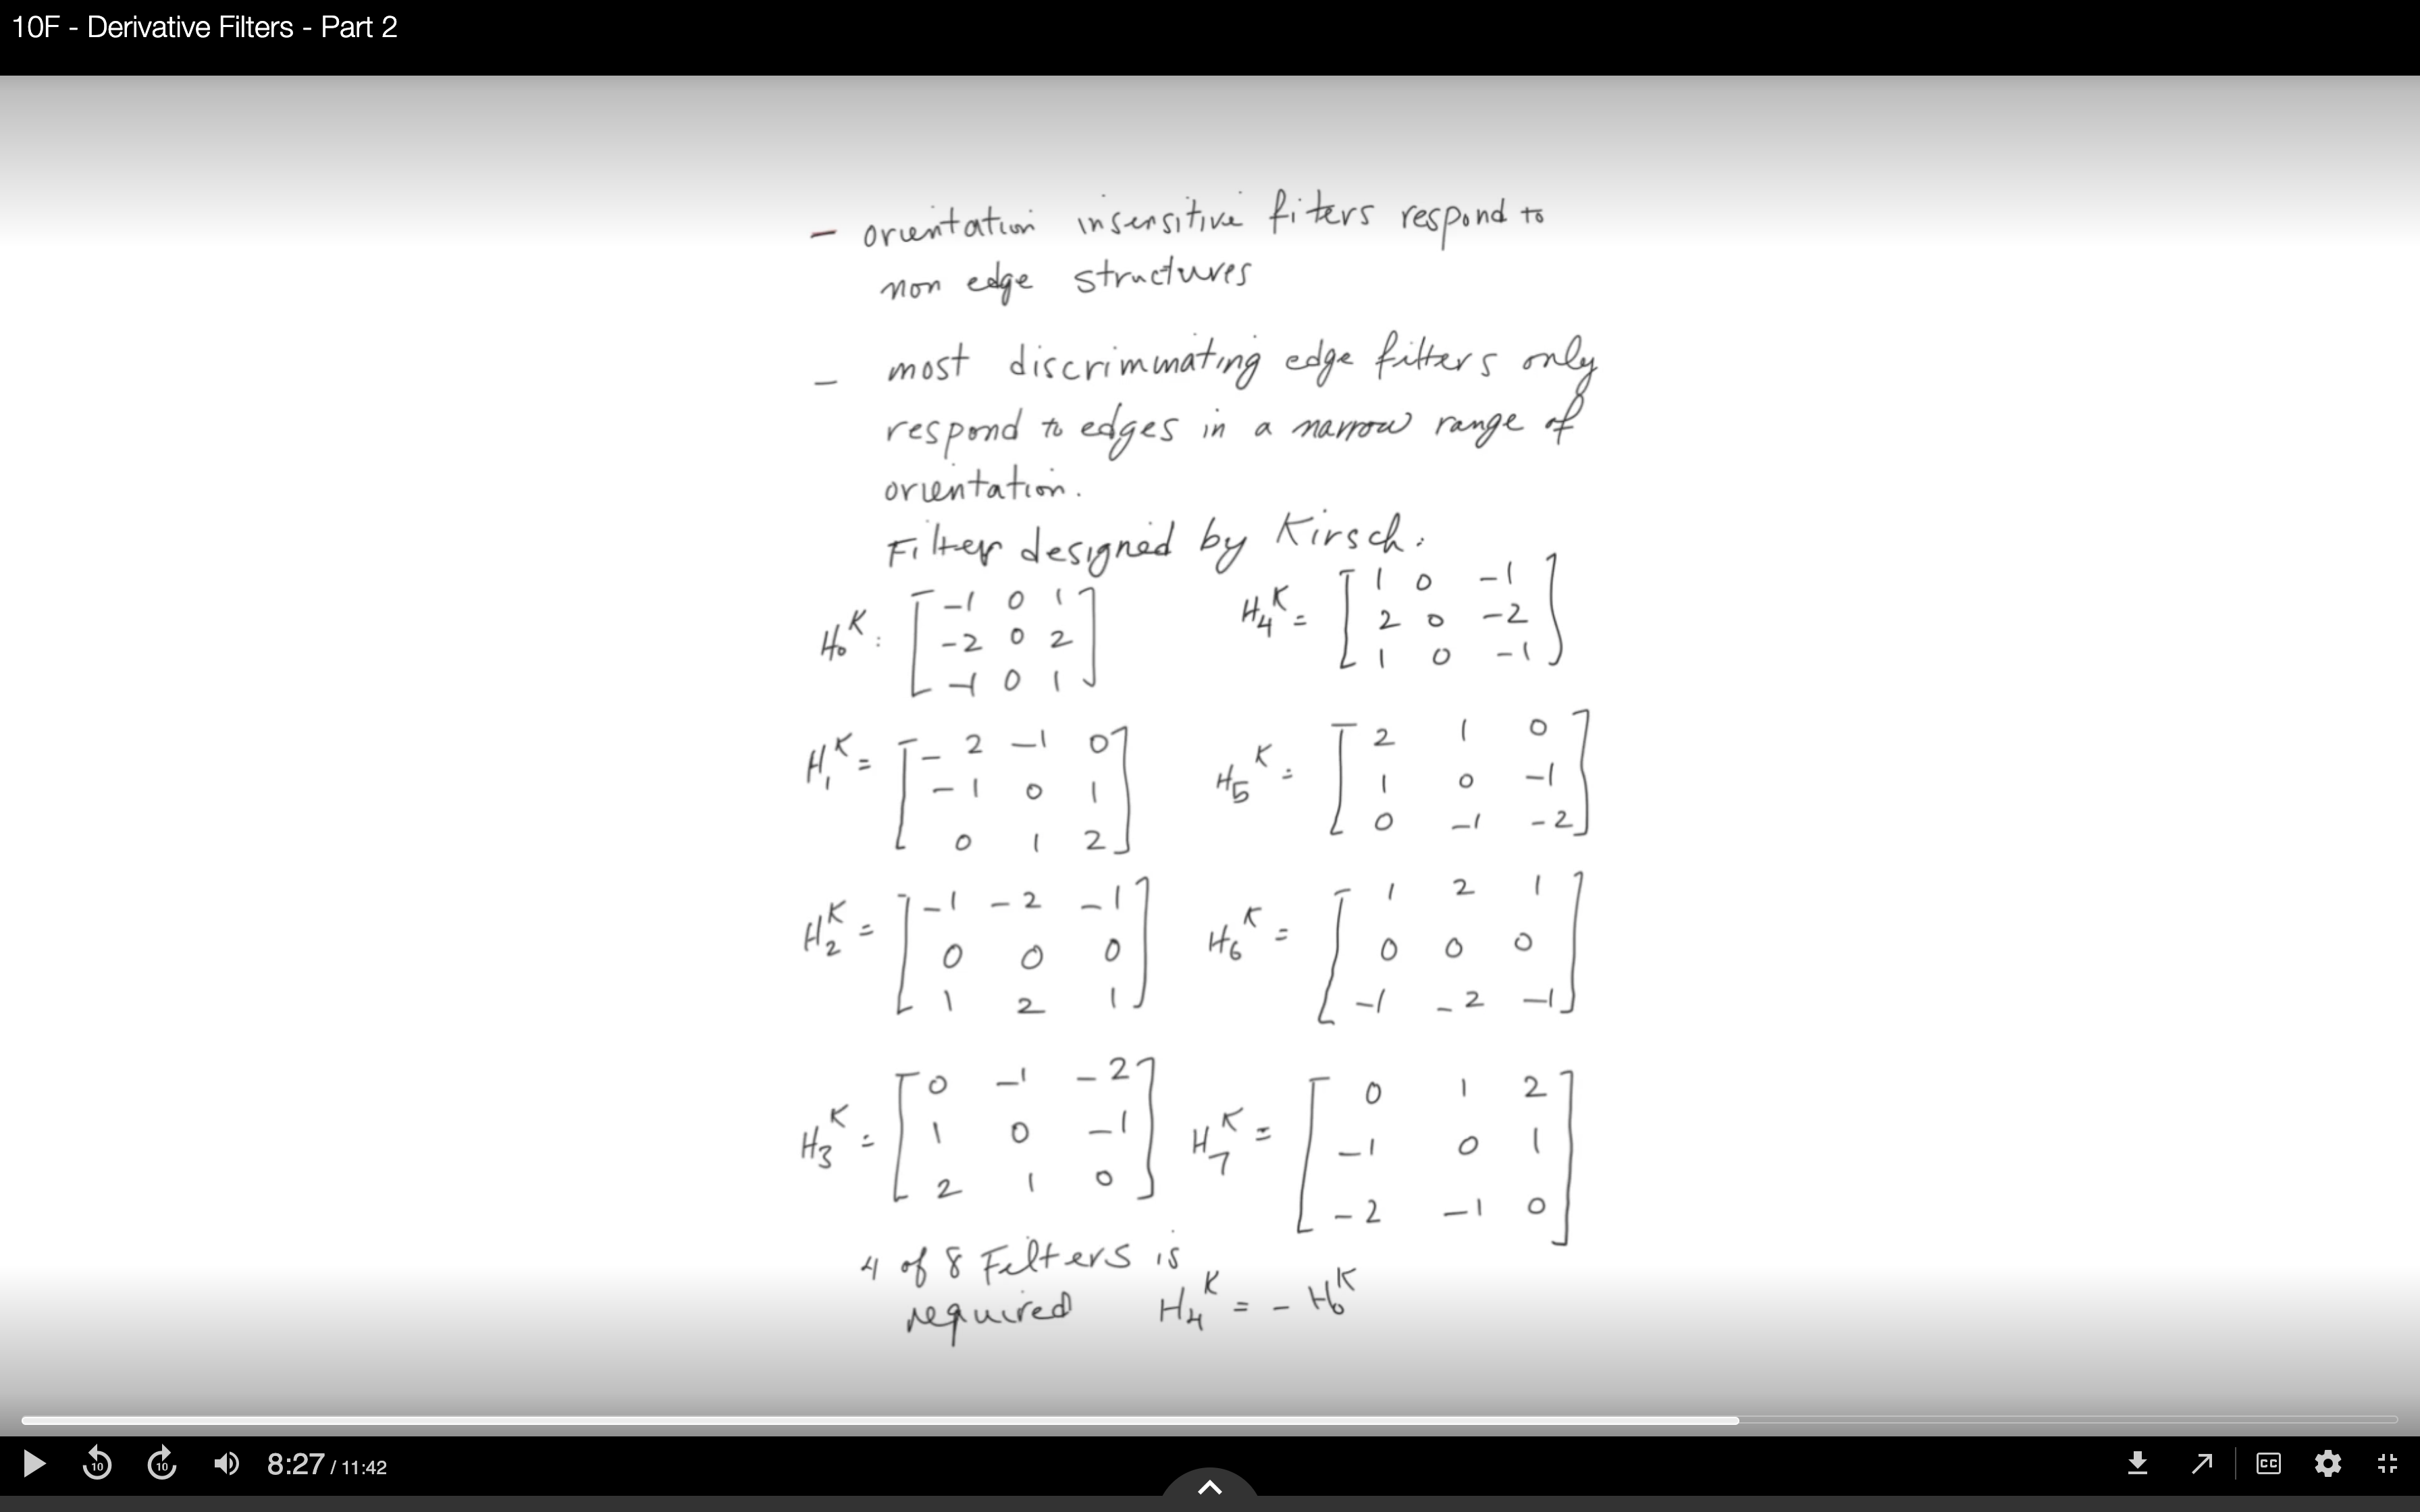 10F - Derivative Filters - Part 2
- orientation insensitive filters respond to
non edge structures
- most discriminating edge filters only
respond to edges in a narrow range of
orientation.
Filter designed by Kirsch:
H₀ᴷ: [ -1 0 1
-2 0 2
-1 0 1 ]
H₄ᴷ = [ 1 0 -1
2 0 -2
1 0 -1 ]
H₁ᴷ = [ -2 -1 0
-1 0 1
0 1 2 ]
H₅ᴷ = [ 2 1 0
1 0 -1
0 -1 -2 ]
H₂ᴷ = [ -1 -2 -1
0 0 0
1 2 1 ]
H₆ᴷ = [ 1 2 1
0 0 0
-1 -2 -1 ]
H₃ᴷ = [ 0 -1 -2
1 0 -1
2 1 0 ]
H₇ᴷ = [ 0 1 2
-1 0 1
-2 -1 0 ]
4 of 8 Filters is
required H₄ᴷ = - H₀ᴷ
10 10 8:27 / 11:42 CC